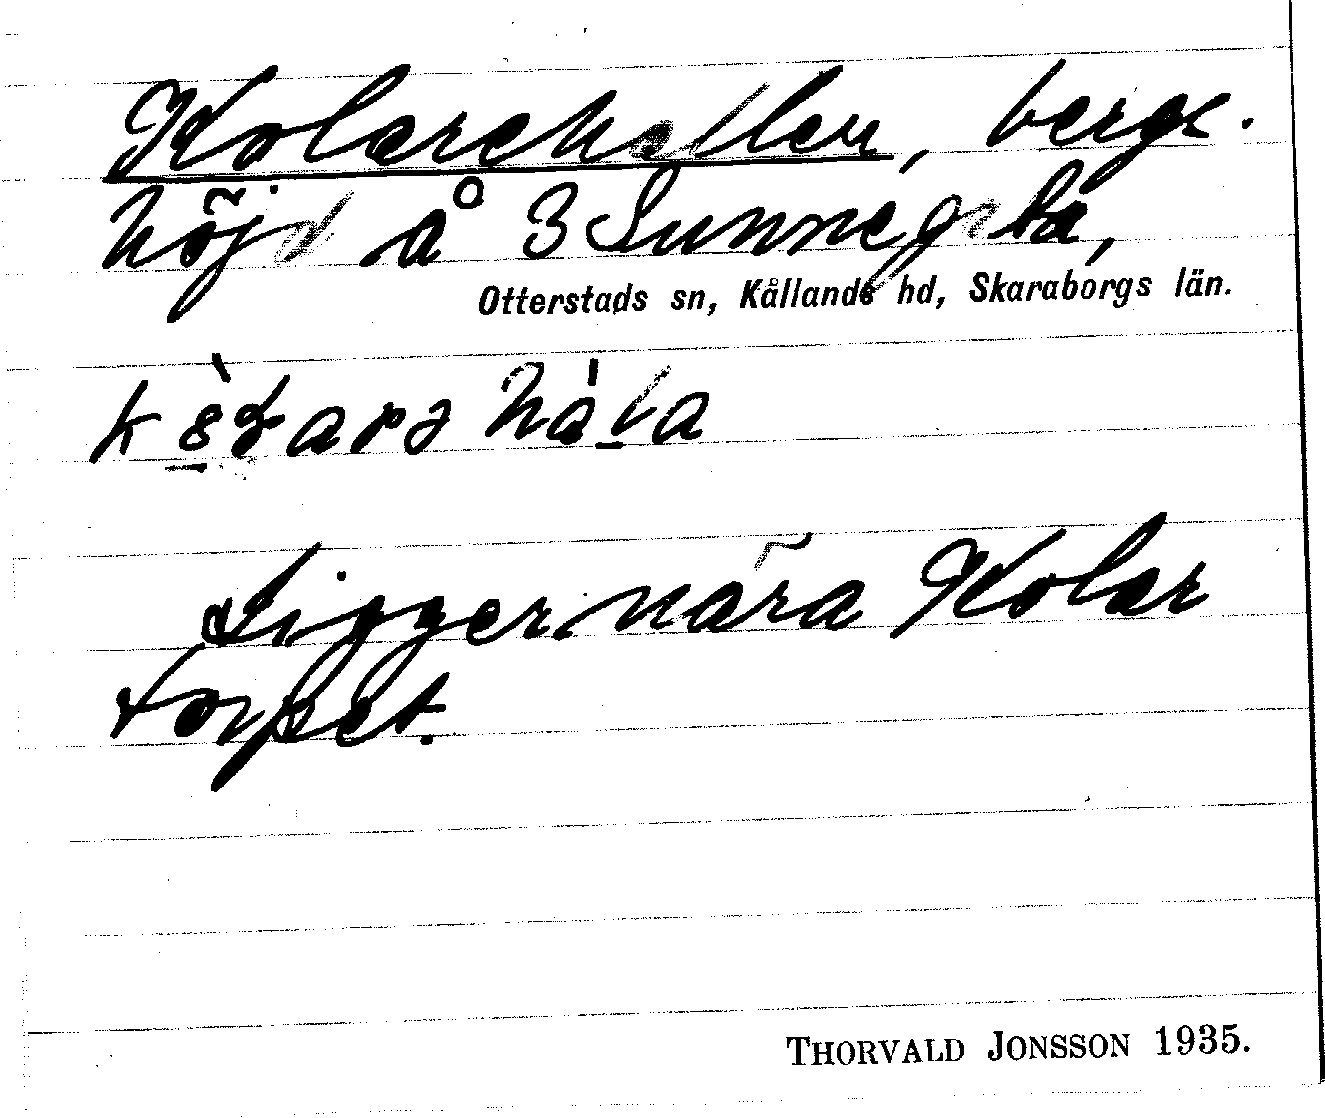 Kolarehallen, bergs-
höjd å 3 Sunnegårda,
Otterstads sn, Kållands hd, Skaraborgs län.
Ligger nära Kolar
torpet.
THORVALD JONSSON 1935.